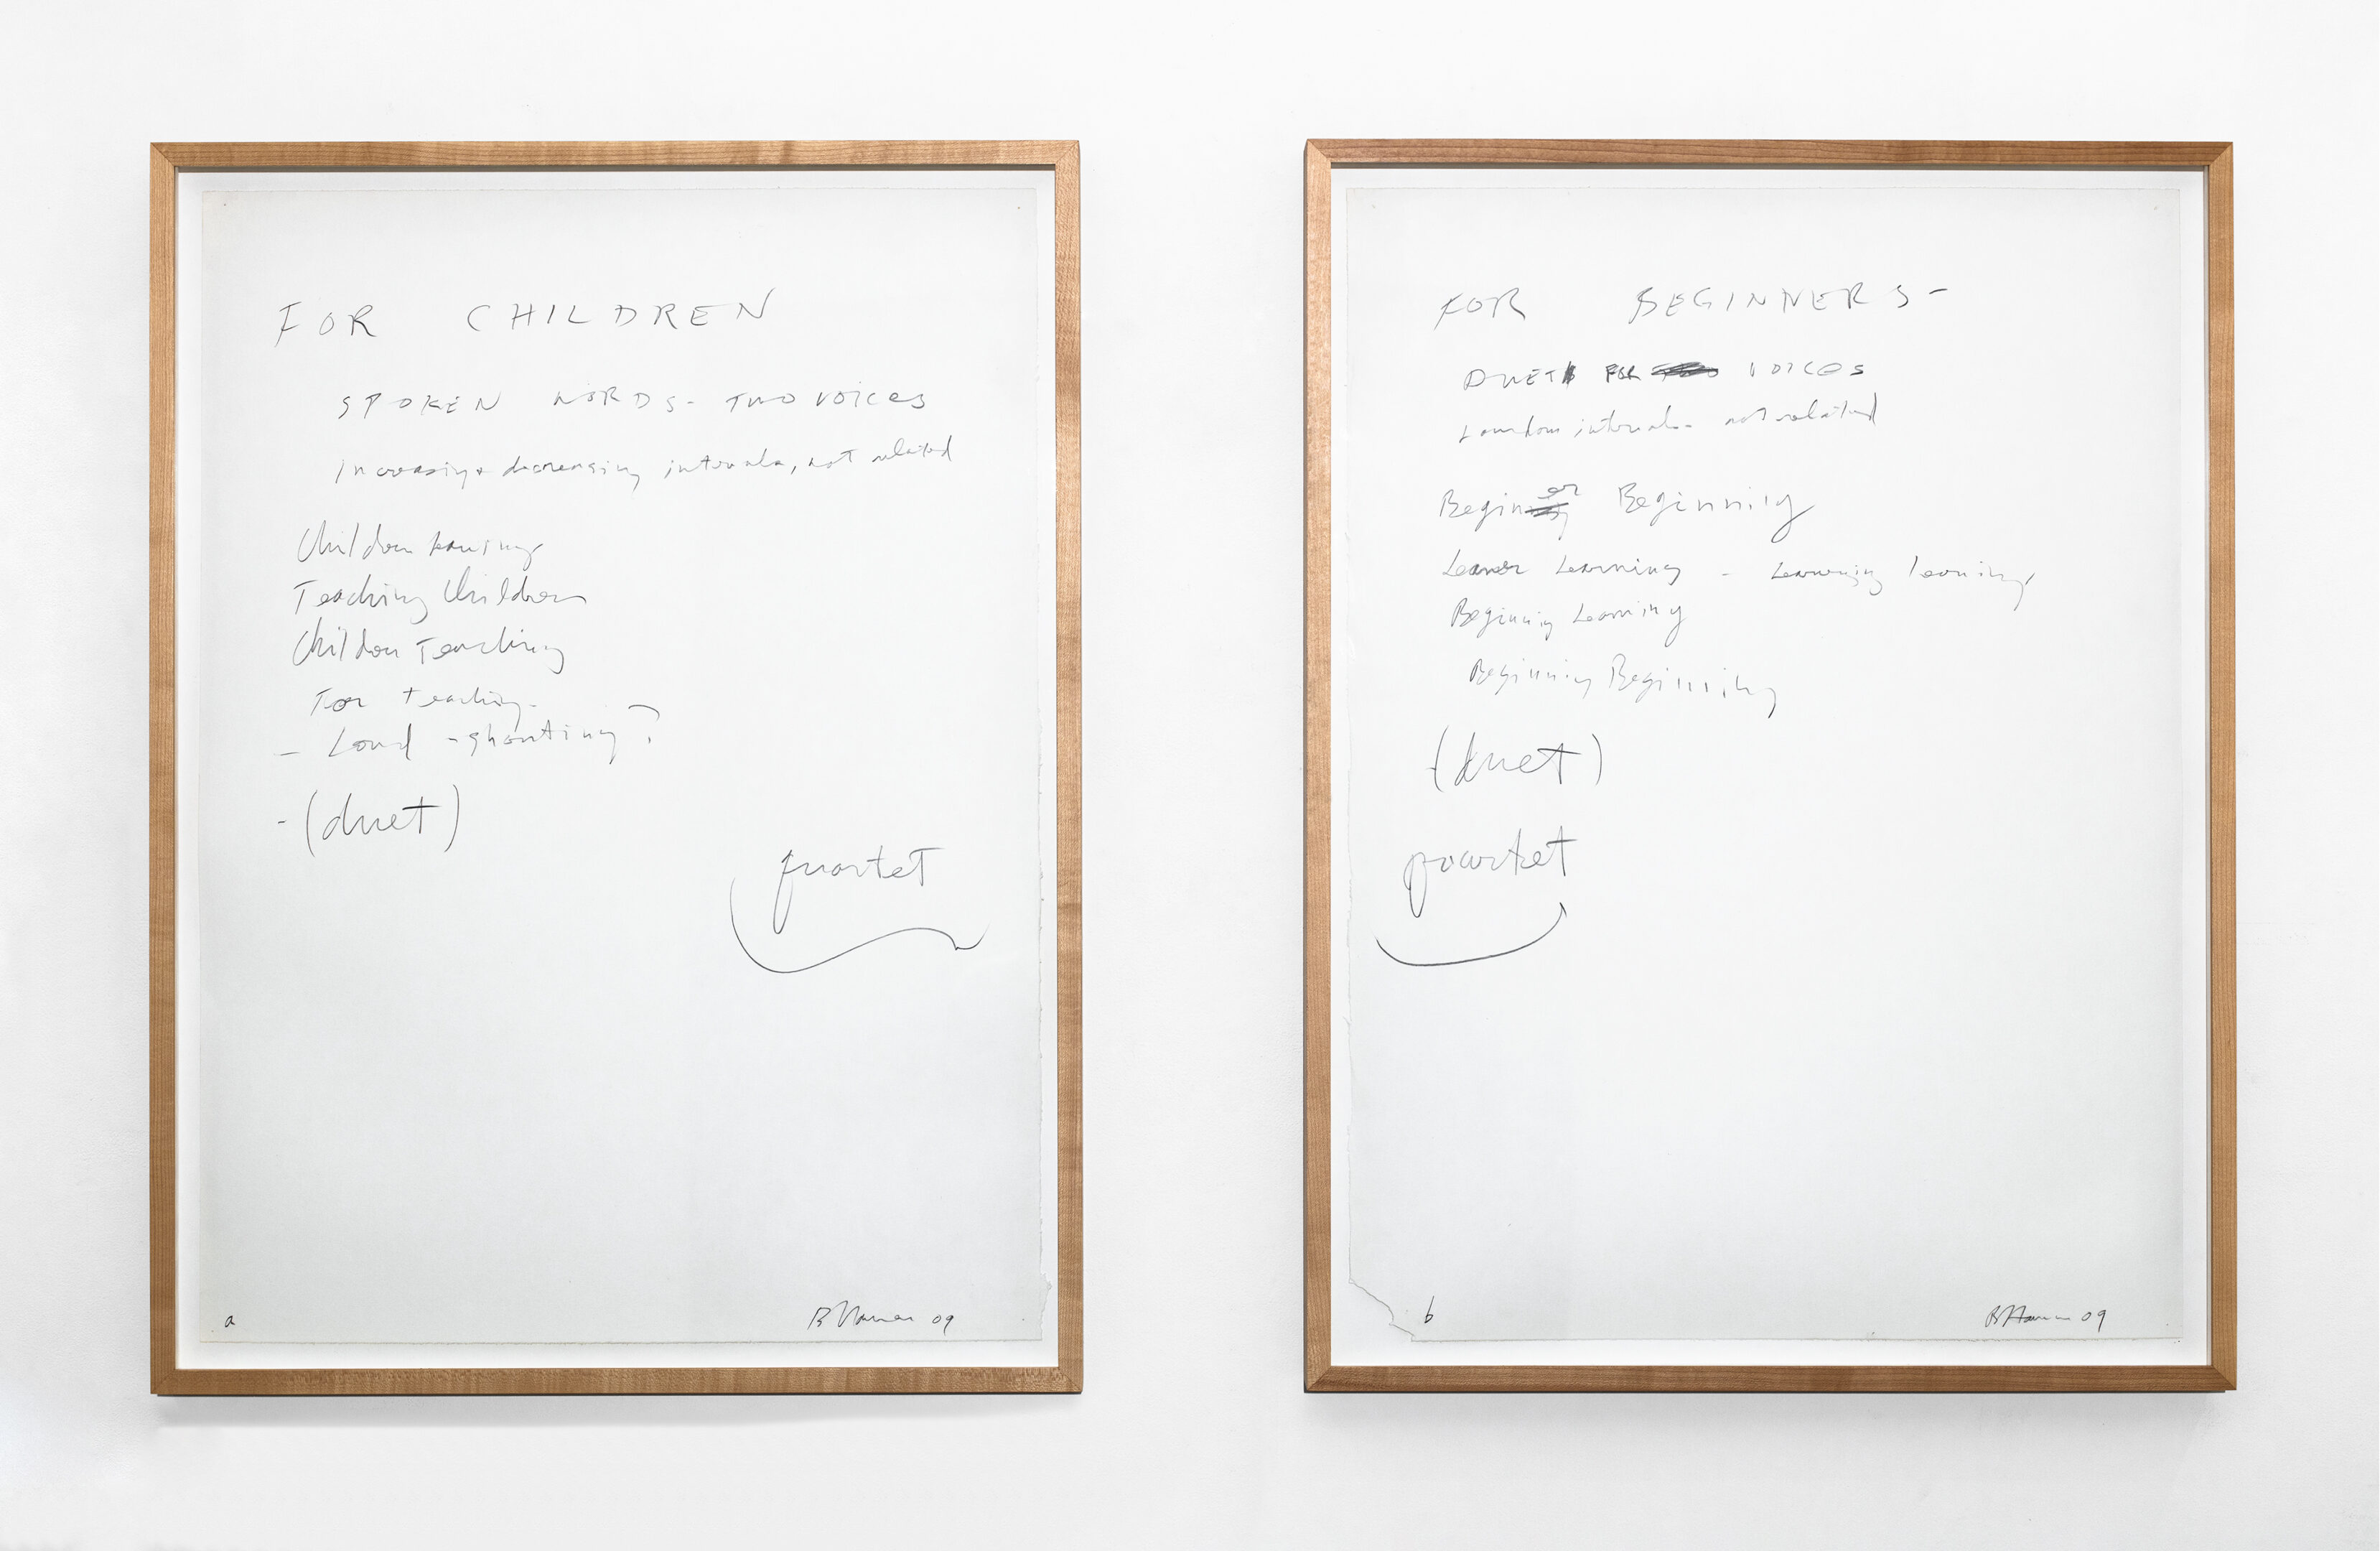 FOR CHILDREN
SPOKEN WORDS - TWO VOICES
increasing + decreasing intervals, not related
Children
Teaching Children
Children Teaching
For teaching -
- Loud - shouting?
- (duet)
quartet
a
B Nauman 09
FOR BEGINNERS -
DUET FOR VOICES
random intervals - not related
Beginer Beginning
Learner Learning - Learning learning
Beginning Learning
Beginning Beginning
(duet)
quartet
b
B Nauman 09